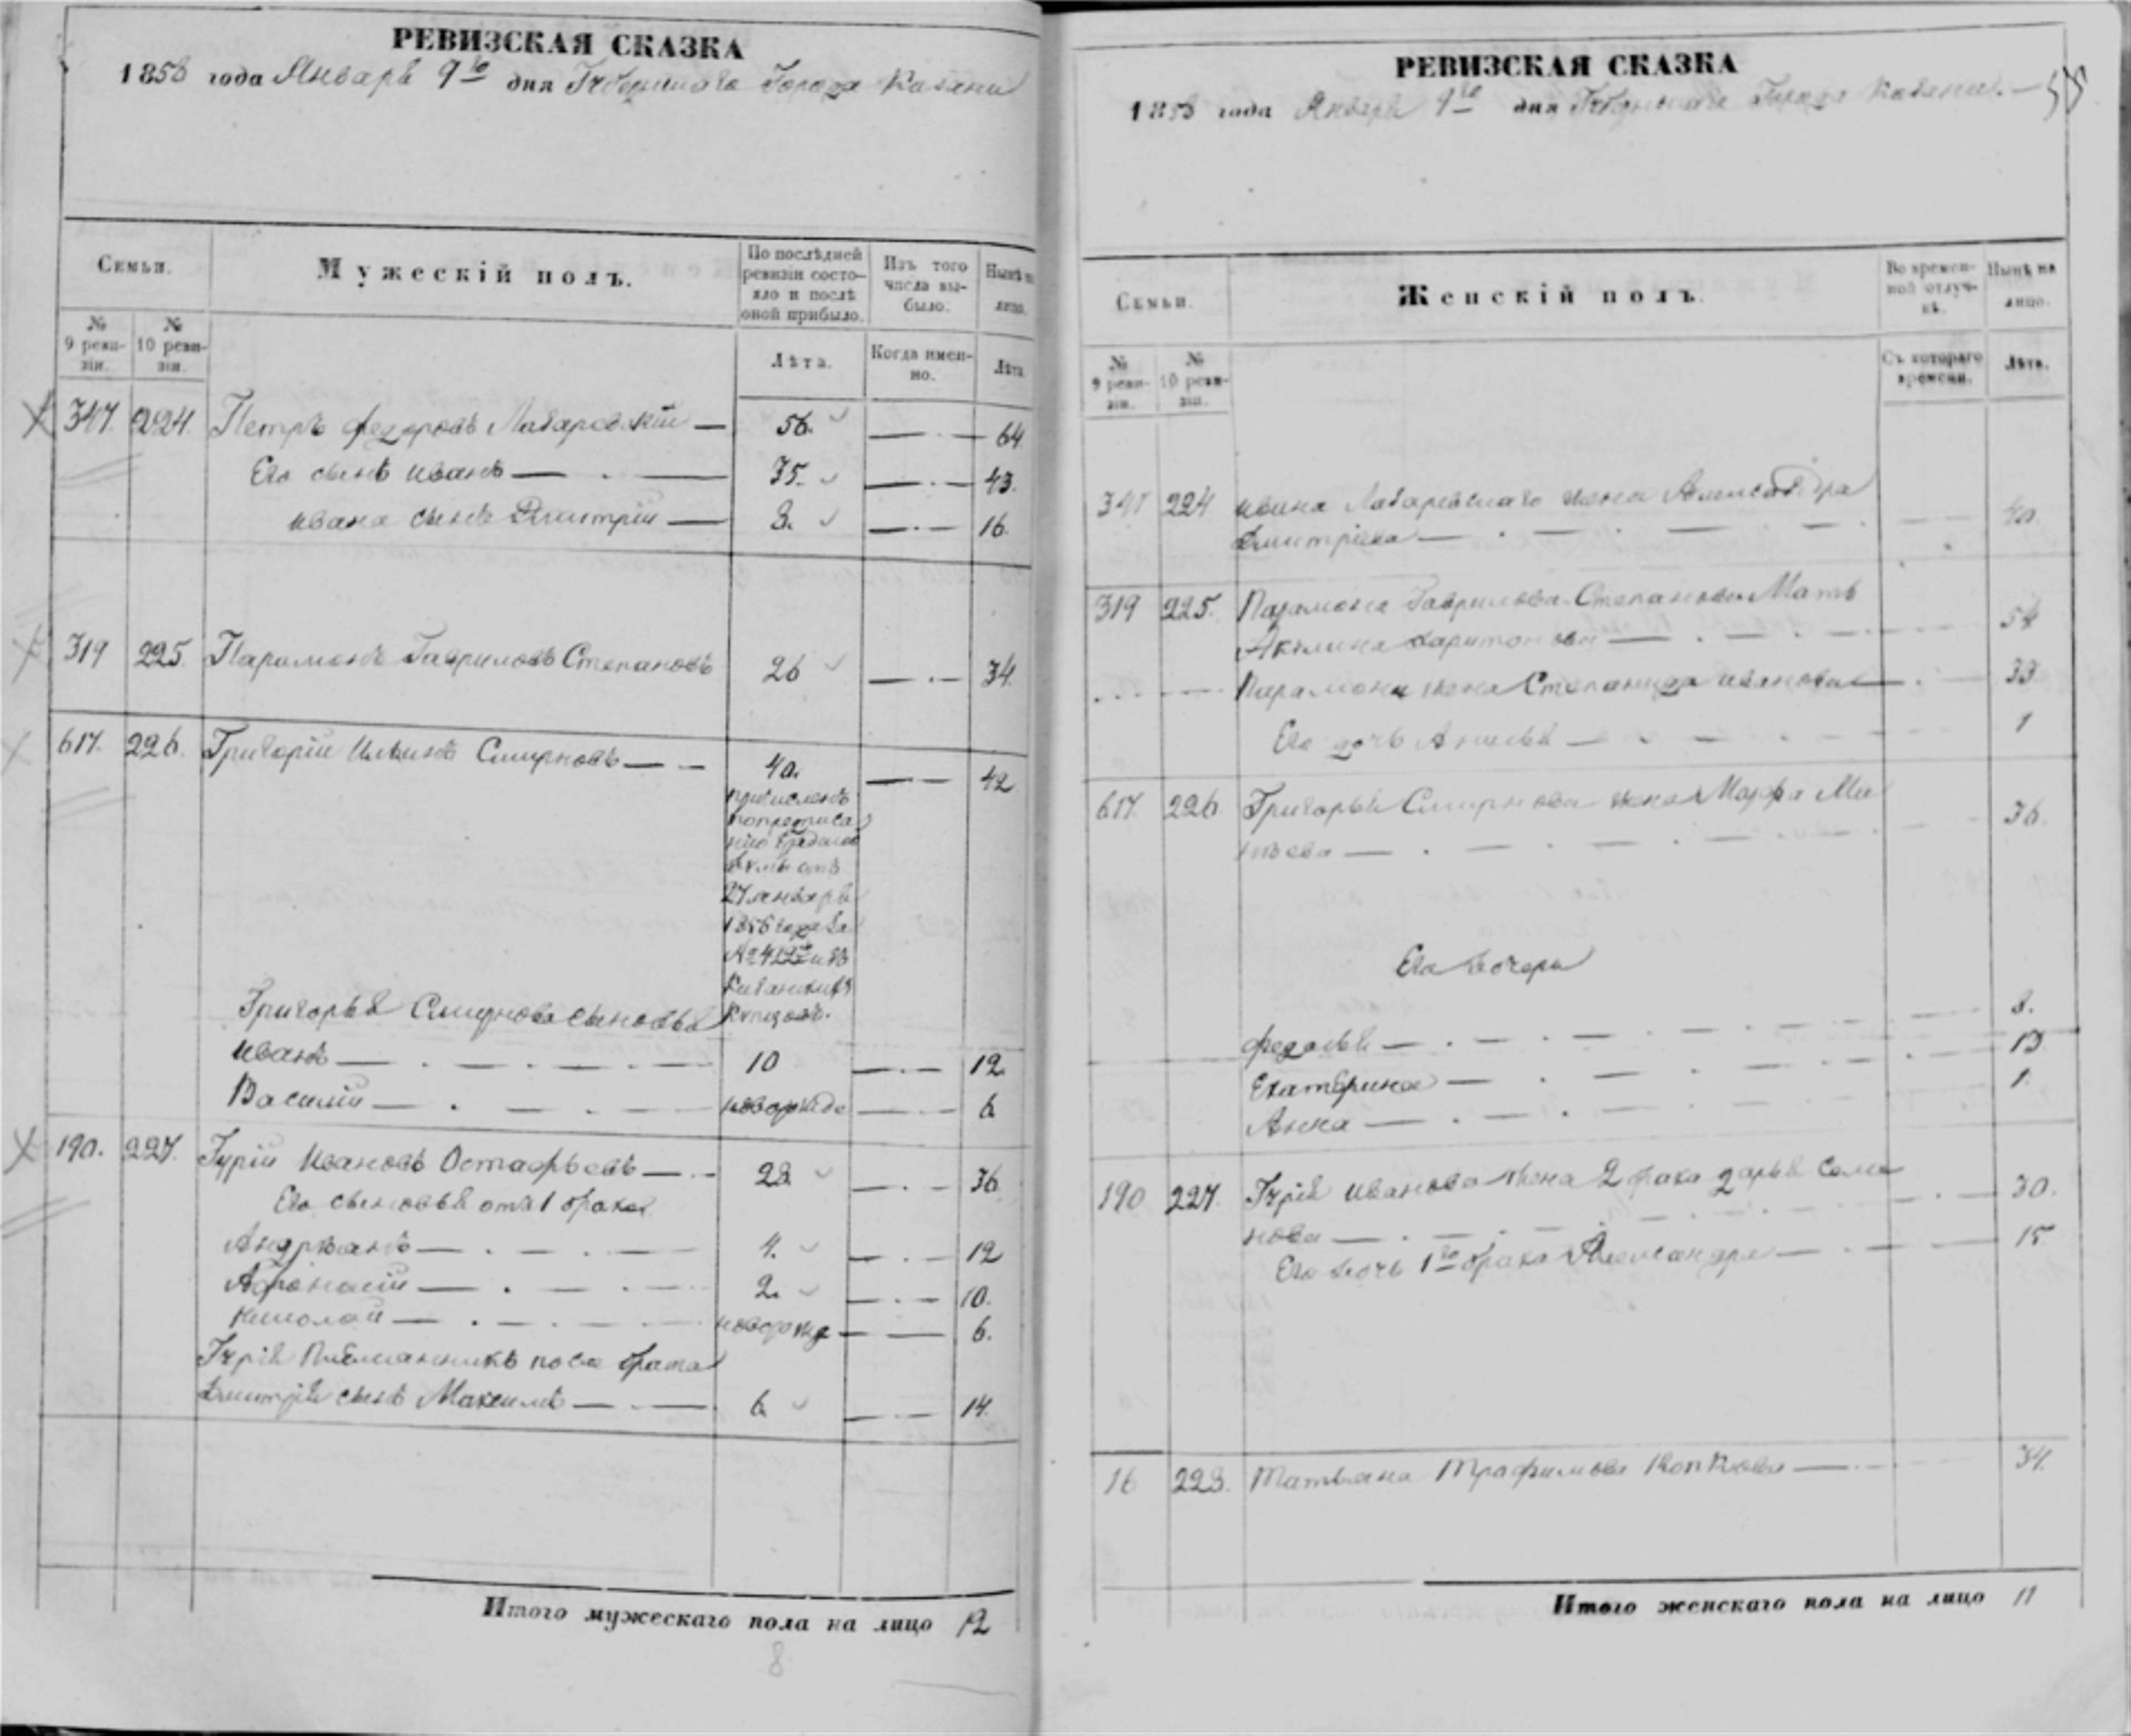 РЕВИЗСКАЯ СКАЗКА
1858 года Января 9го дня Губернскаго Города Казани
Семьи.
Мужескій полъ.
По послѣдней ревизіи состояло и послѣ оной прибыло.
Изъ того числа выбыло.
Нынѣ на лицо.
№ 9 ревизіи.
№ 10 ревизіи.
Лѣта.
Когда именно.
Лѣта.
347. 224. Петръ Федоровъ Лазаревскій — 56. — 64
Его сынъ Иванъ — 35. — 43.
Ивана сынъ Дмитрій — 8. — 16.
319 225. Парамонъ Гавриловъ Степановъ 26 — 34.
617. 226. Григорій Ильинъ Смирновъ — 40. — 42
причисленъ
по предписа
нію
отъ
27 января
1856 года за
№
Казанскихъ
купцовъ.
Григорья Смирнова сыновья
Иванъ — 10 — 12.
Василій — новорожде — 6
190. 227. Гурій Ивановъ Остафьевъ — 28. — 36
Его сыновья отъ 1 брака
Андреянъ — 4. — 12
Афонасій — 2. — 10.
Николай — новорожд — 6.
Гурія Племянникъ родна брата
Дмитрія сынъ Максимъ — 6. — 14.
Итого мужескаго пола на лицо 12
8
РЕВИЗСКАЯ СКАЗКА
1858 года Января 9го дня Губернскаго Города Казани. —
Семьи.
Женскій полъ.
Во временной отлучкѣ.
Нынѣ на лицо.
№ 9 ревизіи.
№ 10 ревизіи.
Съ котораго времени.
Лѣта.
347 224 Ивана Лазаревскаго жена Александра
Дмитріева — 40.
319 225. Парамона Гаврилова Степанова Мать
Акулина Харитонова — 54
Парамона жена Степанида Иванова — 33.
Его дочь Анисья — 1
617. 226. Григорья Смирнова жена Марфа Ми
хѣева — 36.
Его дочери
Федосья — 8.
Екатерина — 13
Анна — 1.
190 227. Гурія Иванова жена 2 брака Дарья Семе
нова — 30.
Его дочь 1го брака Александра — 15
16 228. Татьяна Трофимова — 34.
Итого женскаго пола на лицо 11